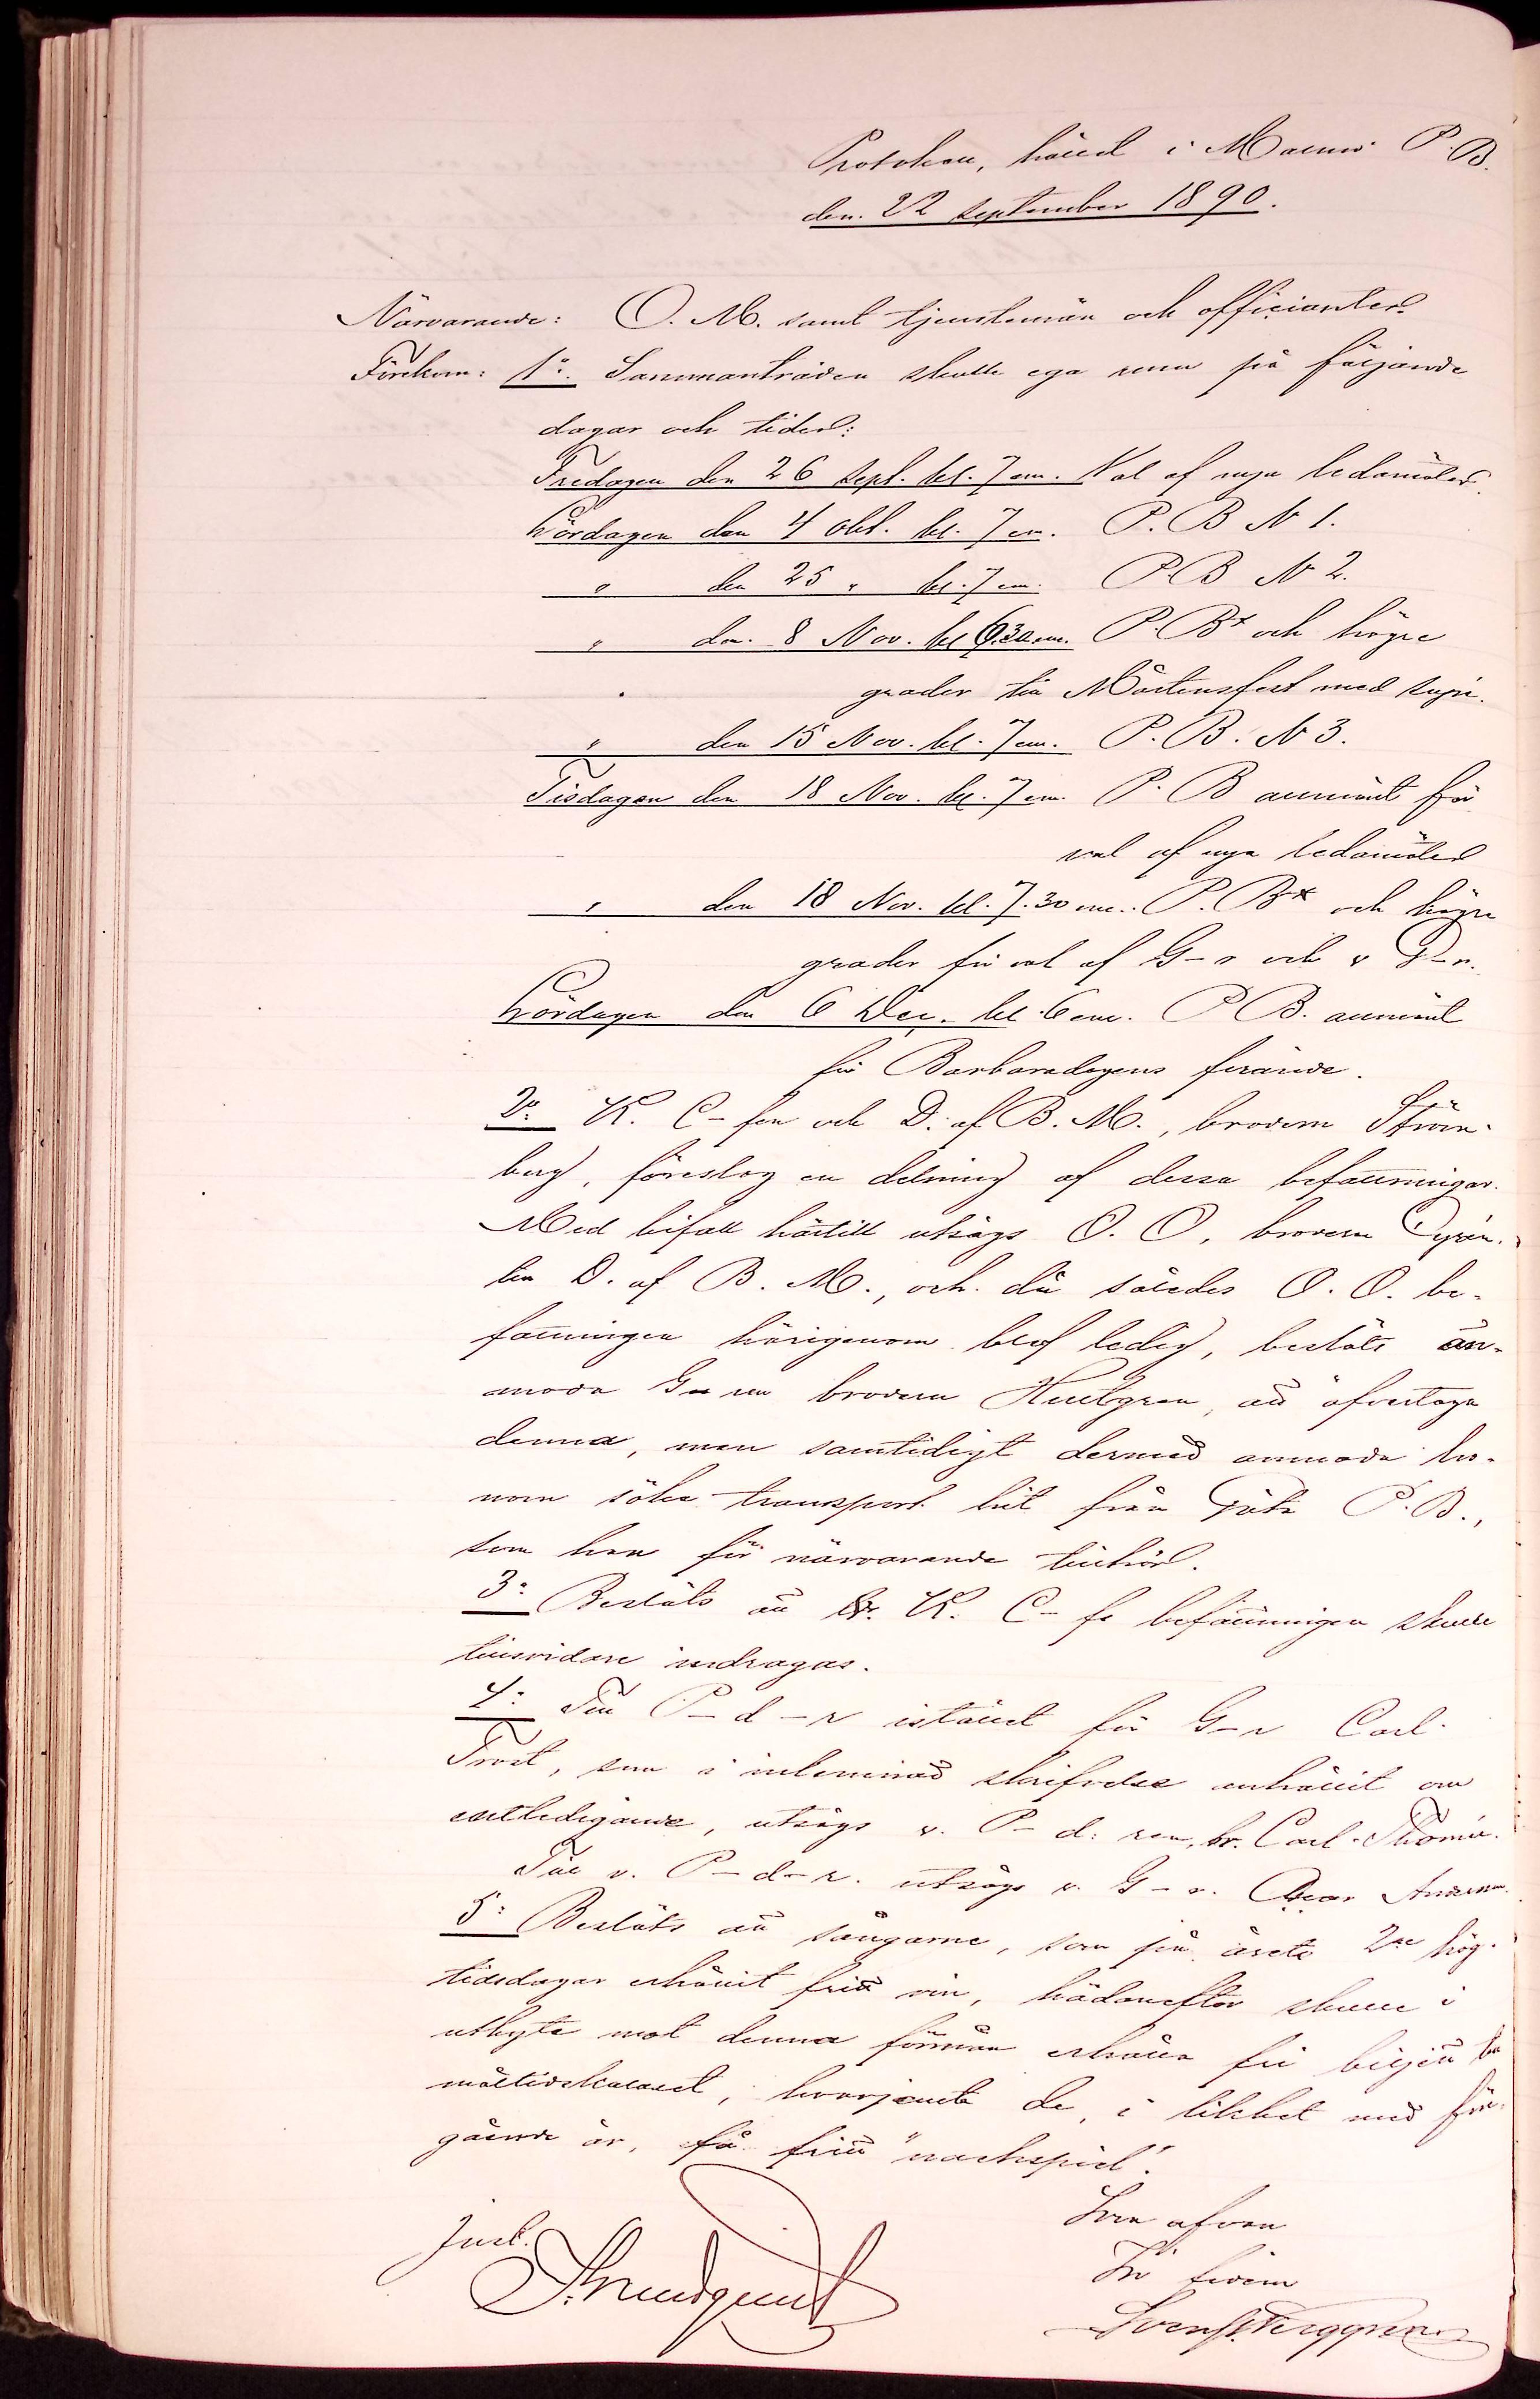 Protokoll, hållet i Malmö P. B.
den 22 september 1890.
Närvarande: O. M. samt tjenstemän och officianter.
Förekom: 1o. Sammanträden skulle ega rum på följande
dagar och tider:
Fredagen den 26 sept. kl. 7 em. Val af nya ledamöter.
Lördagen den 4 okt. kl. 7 em. P. B № 1.
" den 25 " kl. 7 em. P.B № 2.
" den 8 Nov. kl 6.30 em. P. B* och högre
grader till Mårtensfest med supé.
" den 15 Nov. kl. 7 em. P. B. № 3.
Tisdagen den 18 Nov. kl. 7 em. P. B allmänt för
val af nya ledamöter
" den 18 Nov. kl. 7.30 em. P. B* och högre
grader för val af G-r och v G-r.
Lördagen den 6 Dec. kl 6 em. P B. allmänt
för Barbaradagens firande.
2o. K. C-fen och D. af B. M., brodern Ström-
berg, föreslog en delning af dessa befattningar.
Med bifall härtill utsågs O. O, brodern
till D. af B. M., och då således O. O. be-
fattningen härigenom blef ledig, beslöts an-
moda brodern Hultgren, att öfvertaga
denna, men samtidigt dermed anmoda ho-
nom söka transport hit från Göta P. B.,
som han för närvarande tillhör.
3o Beslöts att K. C-fs befattningen skulle
tillsvidare indragas.
4o Till P-d-r istället för G-r Carl
Trost, som i inlemnad skrifvelse anhållit om
entledigande, utsågs v. P-d-ren, br. Carl Thomée.
Till v. P-d-r. utsågs v. G-r. Oscar
5o Beslöts att sångarne, som på årets 2ne hög-
tidsdagar erhållit fritt vin, hädanefter skulle i
utbyte mot denna förmån erhålla fri biljett till
måltidskalaset, hvarjemte de, i likhet med före-
gående år, få fritt "nachspiel".
Som ofvan
In fidem
Just.